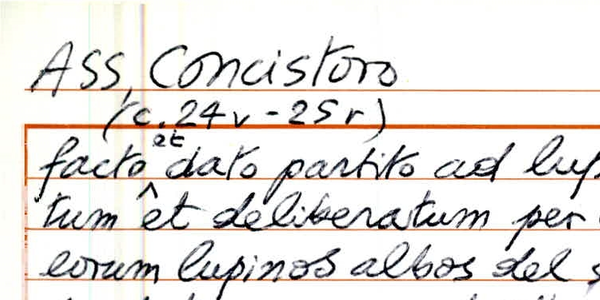 Ass. Concistoro
(c. 24v - 25r)
et
facto dato partito ad lup
tum et deliberatum per
eorum lupinos albos del s